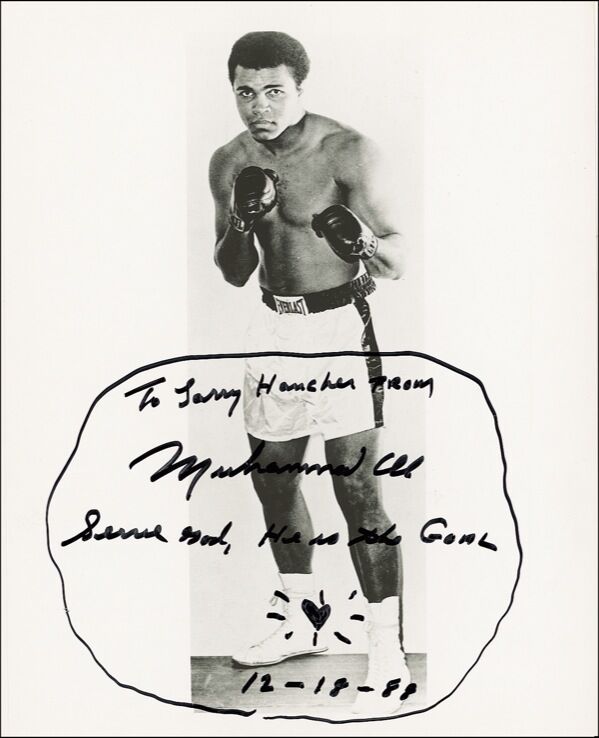 EVERLAST
To Larry Hancher FROM
Muhammad Ali
Serve God, He is the GOAL
12-18-88